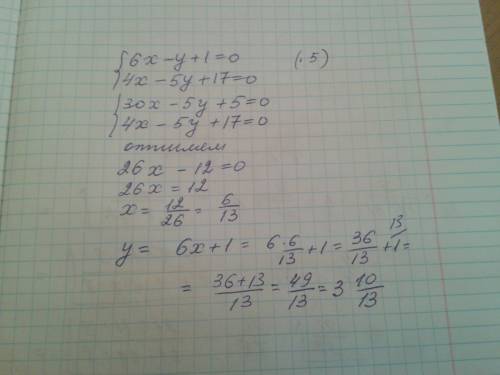 {6x - y + 1 = 0 (·5)
{4x - 5y + 17 = 0
{30x - 5y + 5 = 0
{4x - 5y + 17 = 0
отнимем
26x - 12 = 0
26x = 12
x = 12/26 = 6/13
y = 6x + 1 = 6·6/13 + 1 = 36/13 + 1 13/ =
= 36+13/13 = 49/13 = 3 10/13